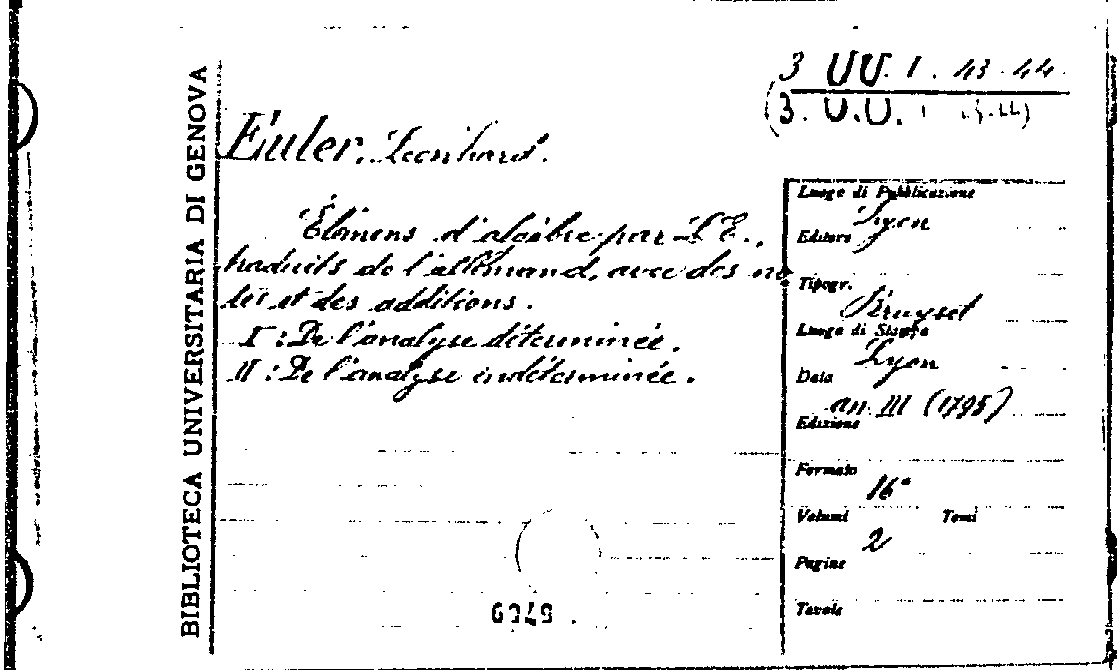 BIBLIOTECA UNIVERSITARIA DI GENOVA
3 UU. I. 43-44.
(3. U.U.
Euler, Leonhard.
Élémens d'algèbre par L. E.,
traduits de l'allemand, avec des no-
tes et des additions.
I: De l'analyse déterminée.
II: De l'analyse indéterminée.
Luogo di Pubblicazione
Lyon
Editore
Tipogr.
Bruyset
Luogo di Stampa
Lyon
Data
an III (1795)
Edizione
Formato
16°
Volumi Tomi
2
Pagine
Tavole